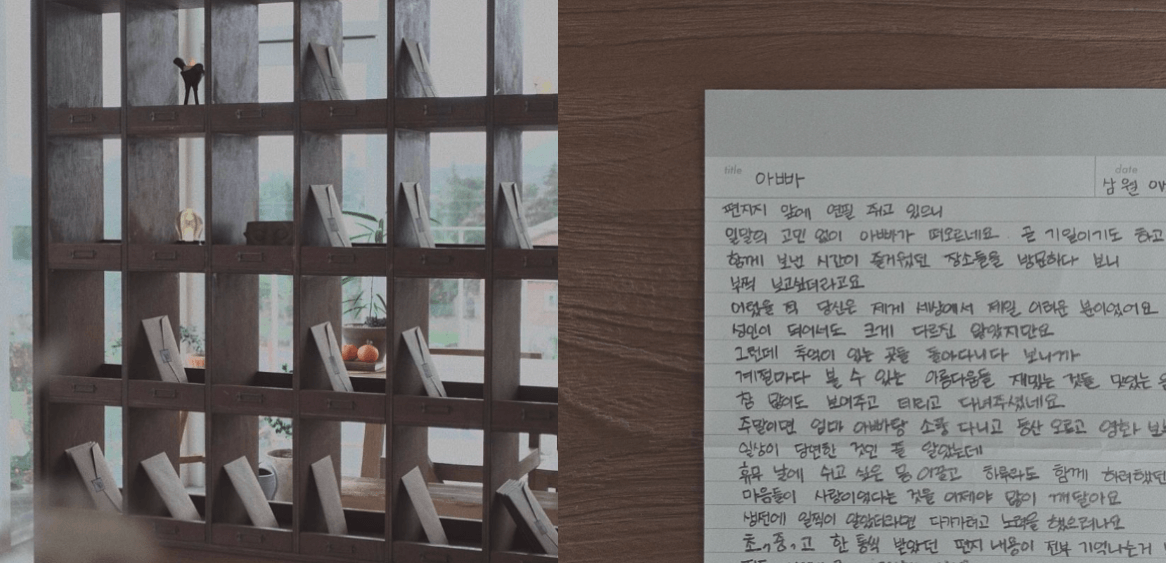 title 아빠
date
삼월
편지지 앞에 연필 쥐고 있으니
일말의 고민 없이 아빠가 떠오르네요 곧 기일이기도 하고
함께 보낸 시간이 즐거웠던 장소들을 방문하다 보니
부쩍 보고싶더라고요
어렸을 적 당신은 제게 세상에서 제일 어려운 분이었어요
성인이 되어서도 크게 다르진 않았지만요
그런데 추억이 있는 곳들 돌아다니다 보니까
계절마다 볼 수 있는 아름다운들 재밌는 것들 맛있는
참 많이도 보여주고 데리고 다녀주셨네요
주말이면 엄마 아빠랑 소풍 다니고 등산 오르고 영화
일상이 당연한 것인 줄 알았는데
휴무 날에 쉬고 싶은 몸 이끌고 하루라도 함께
마음들이 사랑이었다는 것을 이제야 많이 깨달아요
생전에 일찍이 알았더라면 다가가려고 노력을 했으려나요
초,중,고 한 통씩 받았던 편지 내용이 전부 기억나는거